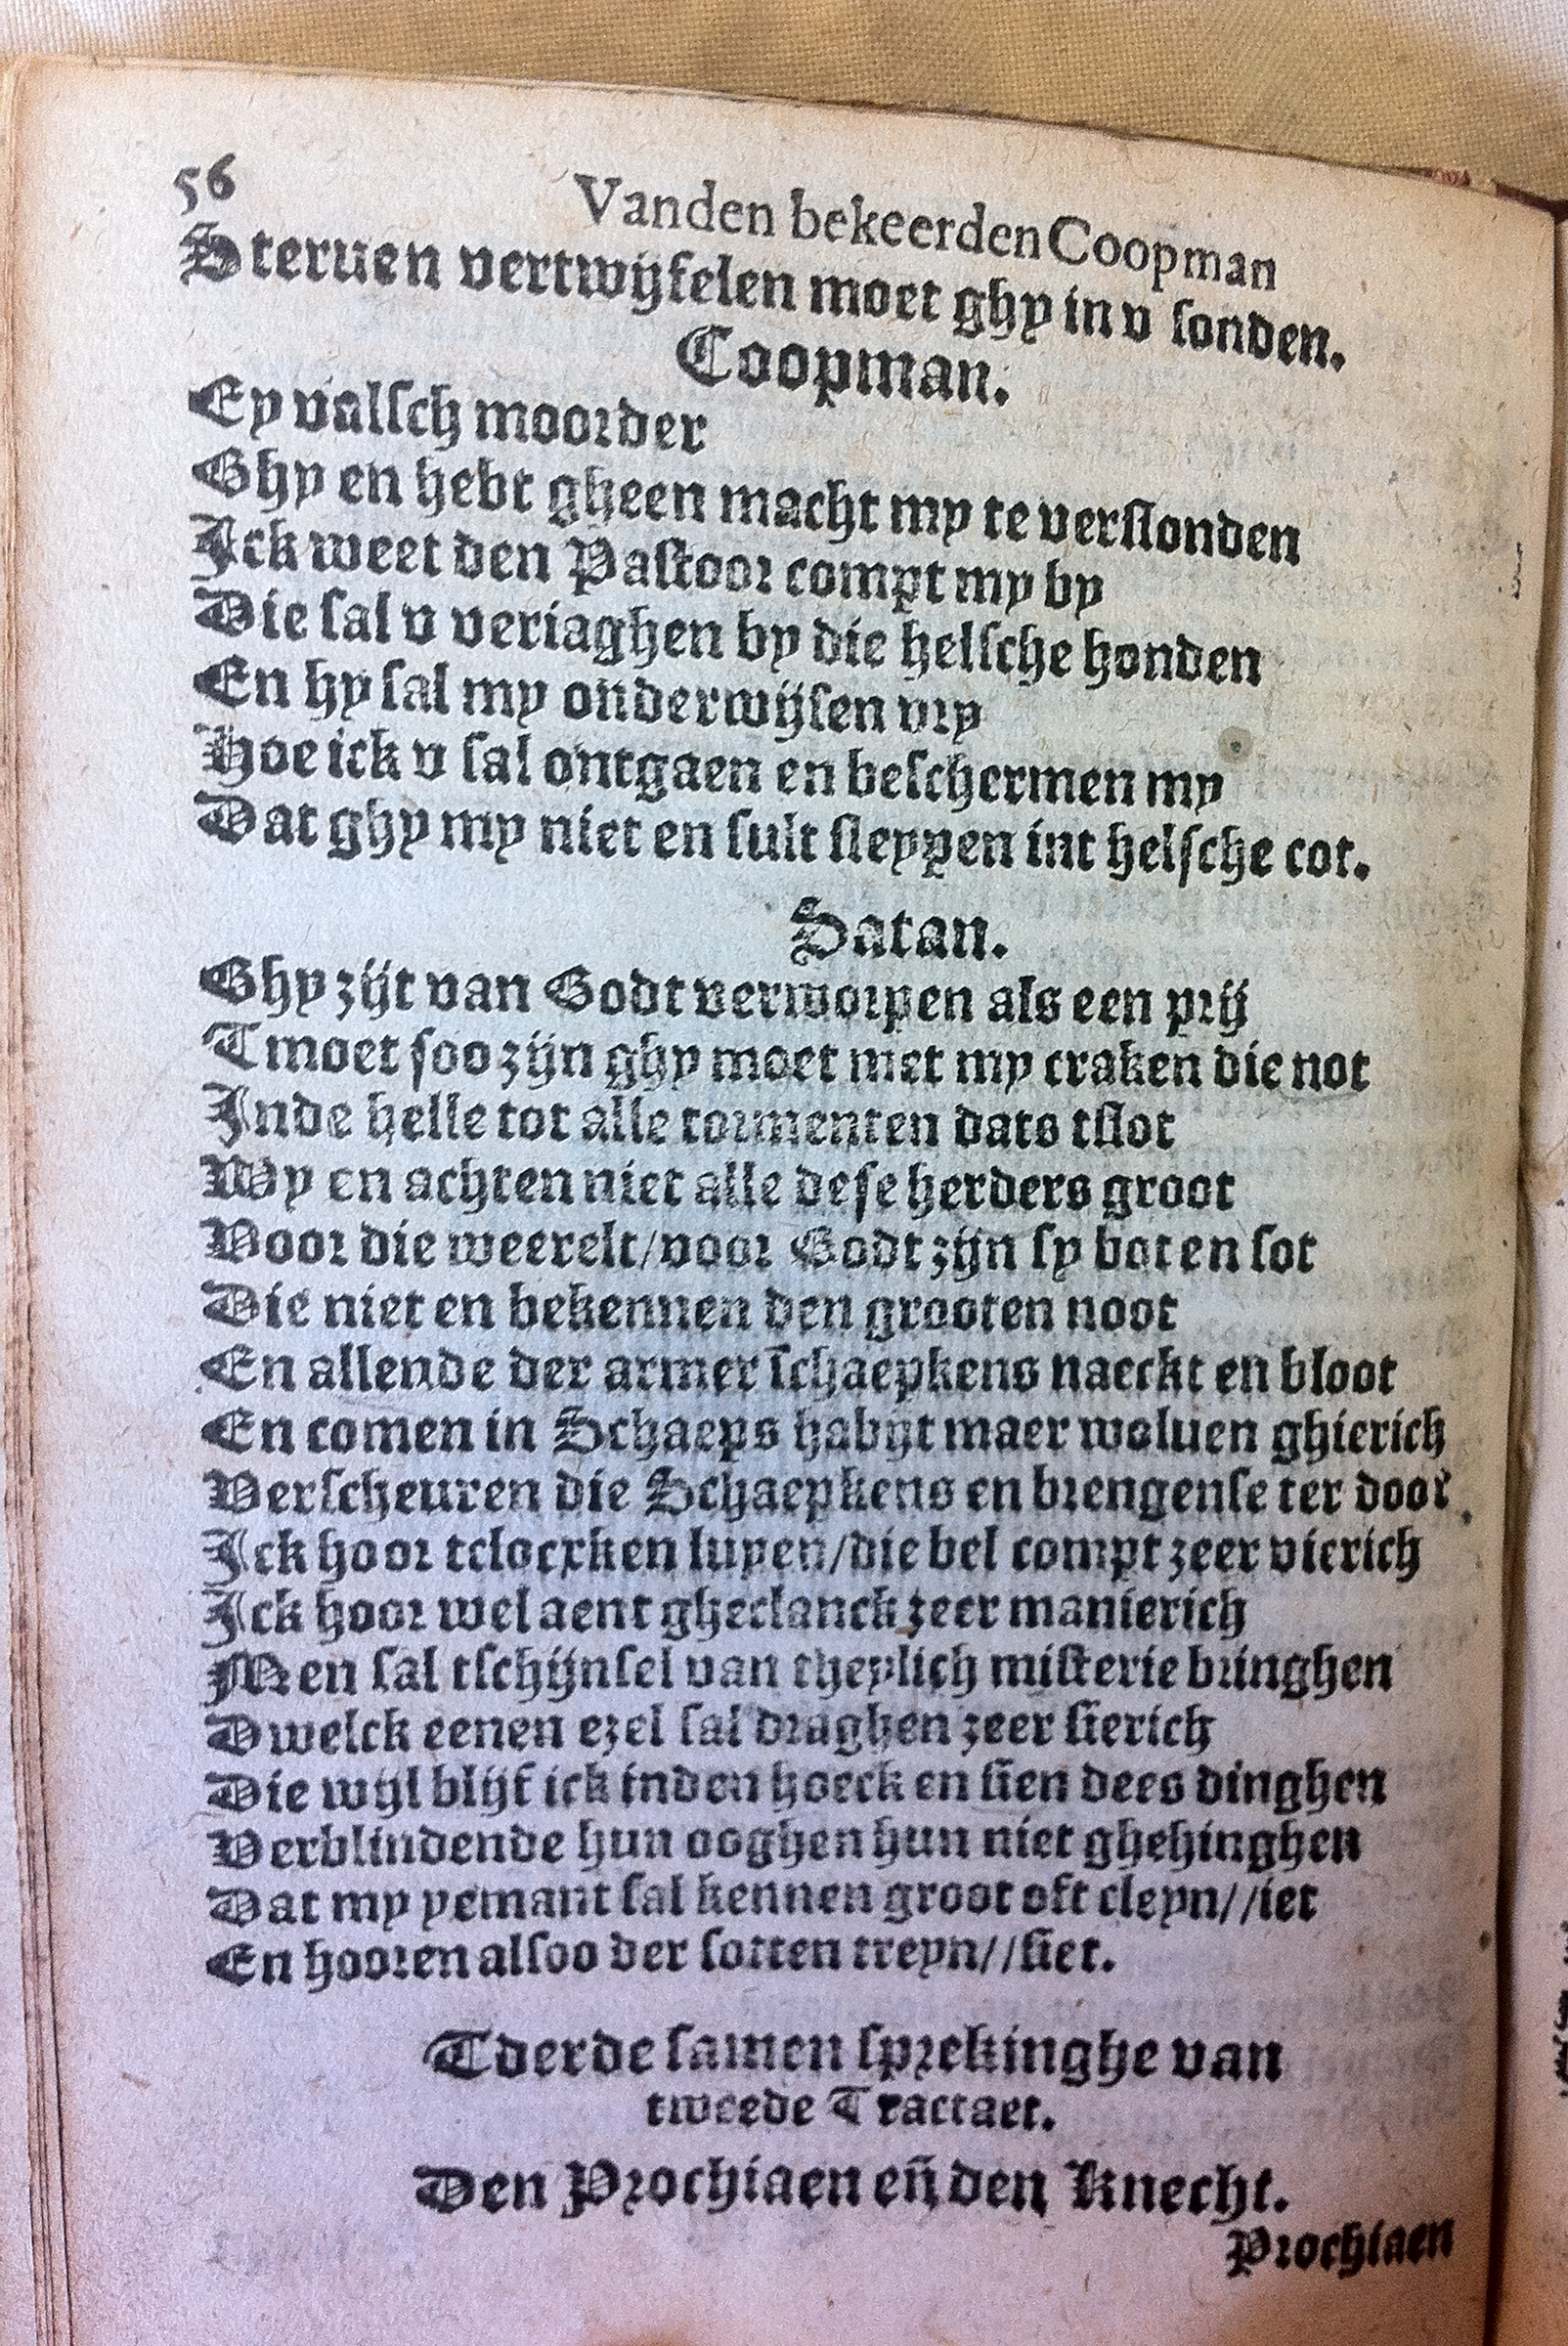 56
Vanden bekeerden Coopman
Steruen vertwijfelen moet ghy in v sonden.
Coopman.
Ey valsch moorder
Ghy en hebt gheen macht my te verslonden
Ick weet den Pastoor compt my by
Die sal v veriaghen by die helsche honden
En hy sal my onderwijsen vry
Hoe ick v sal ontgaen en beschermen my
Dat ghy my niet en sult sleypen int helsche cot.
Satan.
Ghy zijt van Godt verworpen als een prij
Tmoet soo zijn ghy moet met my craken die not
Inde helle tot alle tormenten dats tslot
Wy en achten niet alle dese herders groot
Voor die weerelt/voor Godt zijn sy bot en sot
Die niet en bekennen den grooten noot
En allende der armer schaepkens naeckt en bloot
En comen in Schaeps habijt maer woluen ghierich
Verscheuren die Schaepkens en brengense ter doot
Ick hoor tclocxken luyen/die bel compt zeer vierich
Ick hoor wel aent gheclanck zeer manierich
Men sal tschijnsel van theylich misterie bringhen
Dwelck eenen ezel sal draghen zeer sierich
Die wijl blijf ick inden hoeck en sien dees dinghen
Verblindende hun ooghen hun niet ghehinghen
Dat my yemant sal kennen groot oft cleyn//iet
En hooren alsoo der sotten treyn//siet.
Tderde samen sprekinghe van
tweede Tractaet.
Den Prochiaen eñ den Knecht.
Prochiaen